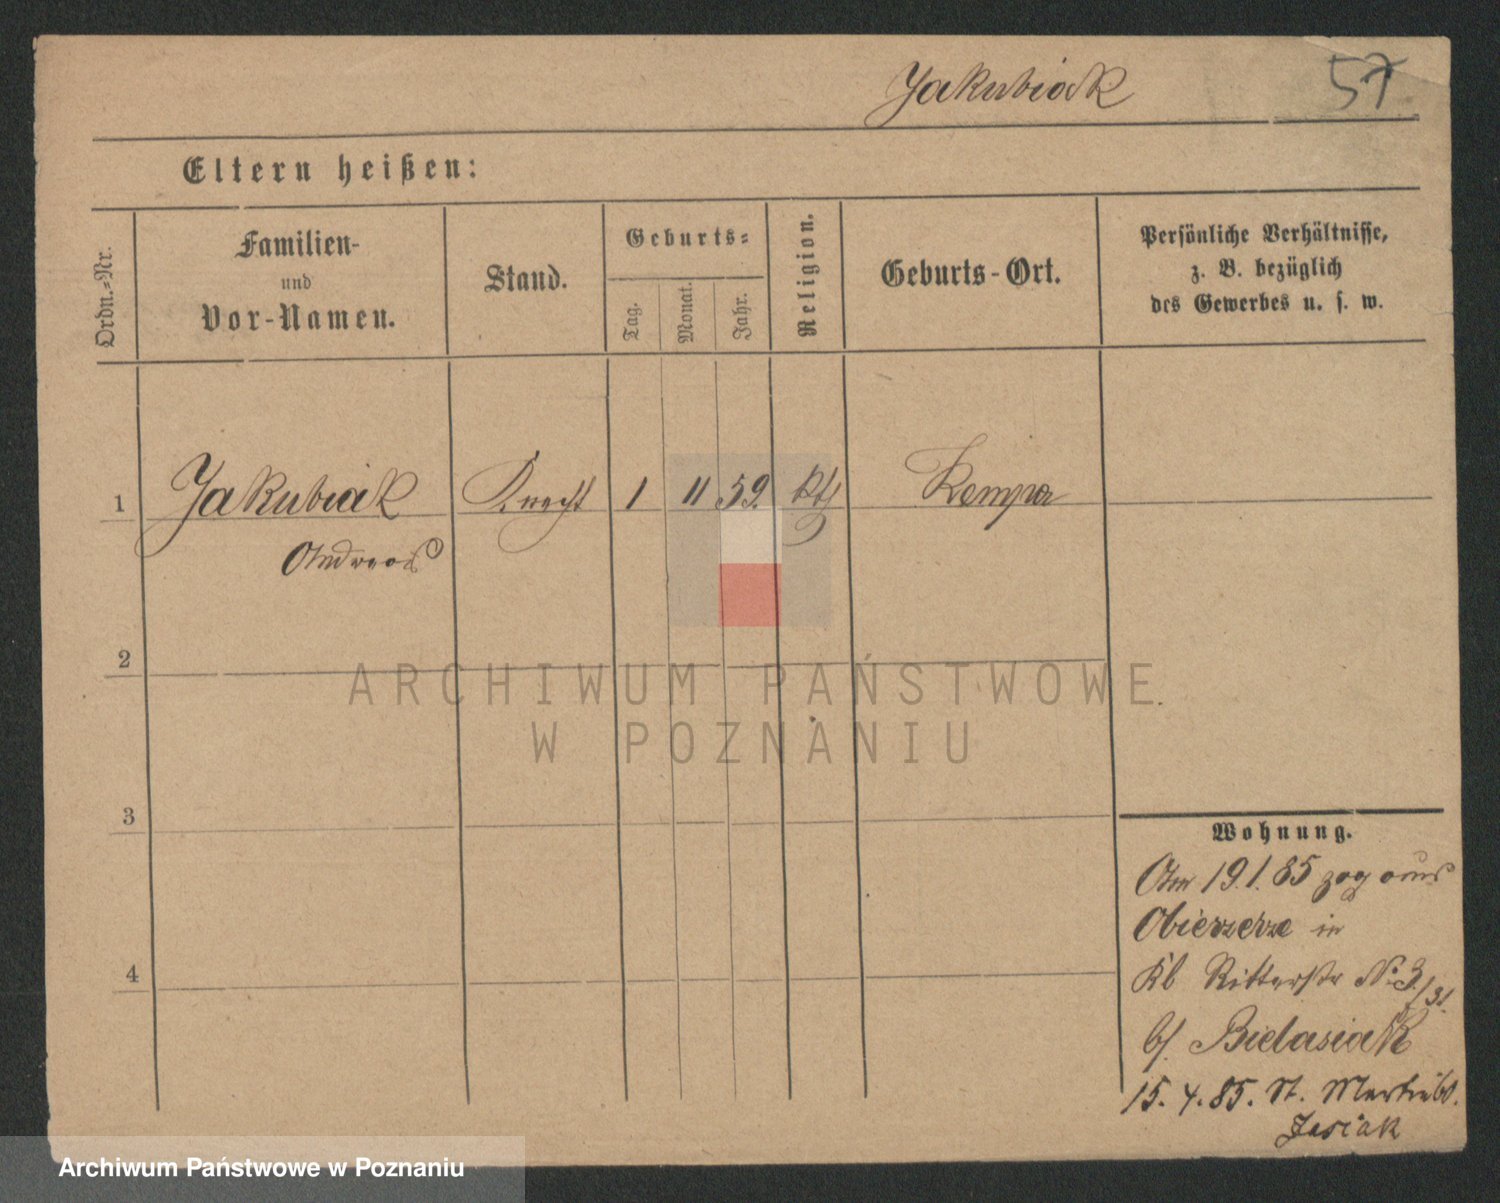 Yakubiak 57
Eltern heißen:
Ordn.-Nr.
Familien-
und
Vor-Namen.
Stand.
Geburts-
Tag.
Monat.
Jahr.
Religion.
Geburts-Ort.
Persönliche Verhältnisse,
z. B. bezüglich
des Gewerbes u. s. w.
1 Yakubiak Knecht 1 11 59. kth Kempa
Andreas
2
ARCHIWUM PAŃSTWOWE
W POZNANIU
3
Wohnung.
Am 19.1.85 zog aus
Obierzerze in
Kl Ritterstr No 3/31.
b/ Bielasiak
15.4.85. St. Martin
Jasiak
4
Archiwum Państwowe w Poznaniu